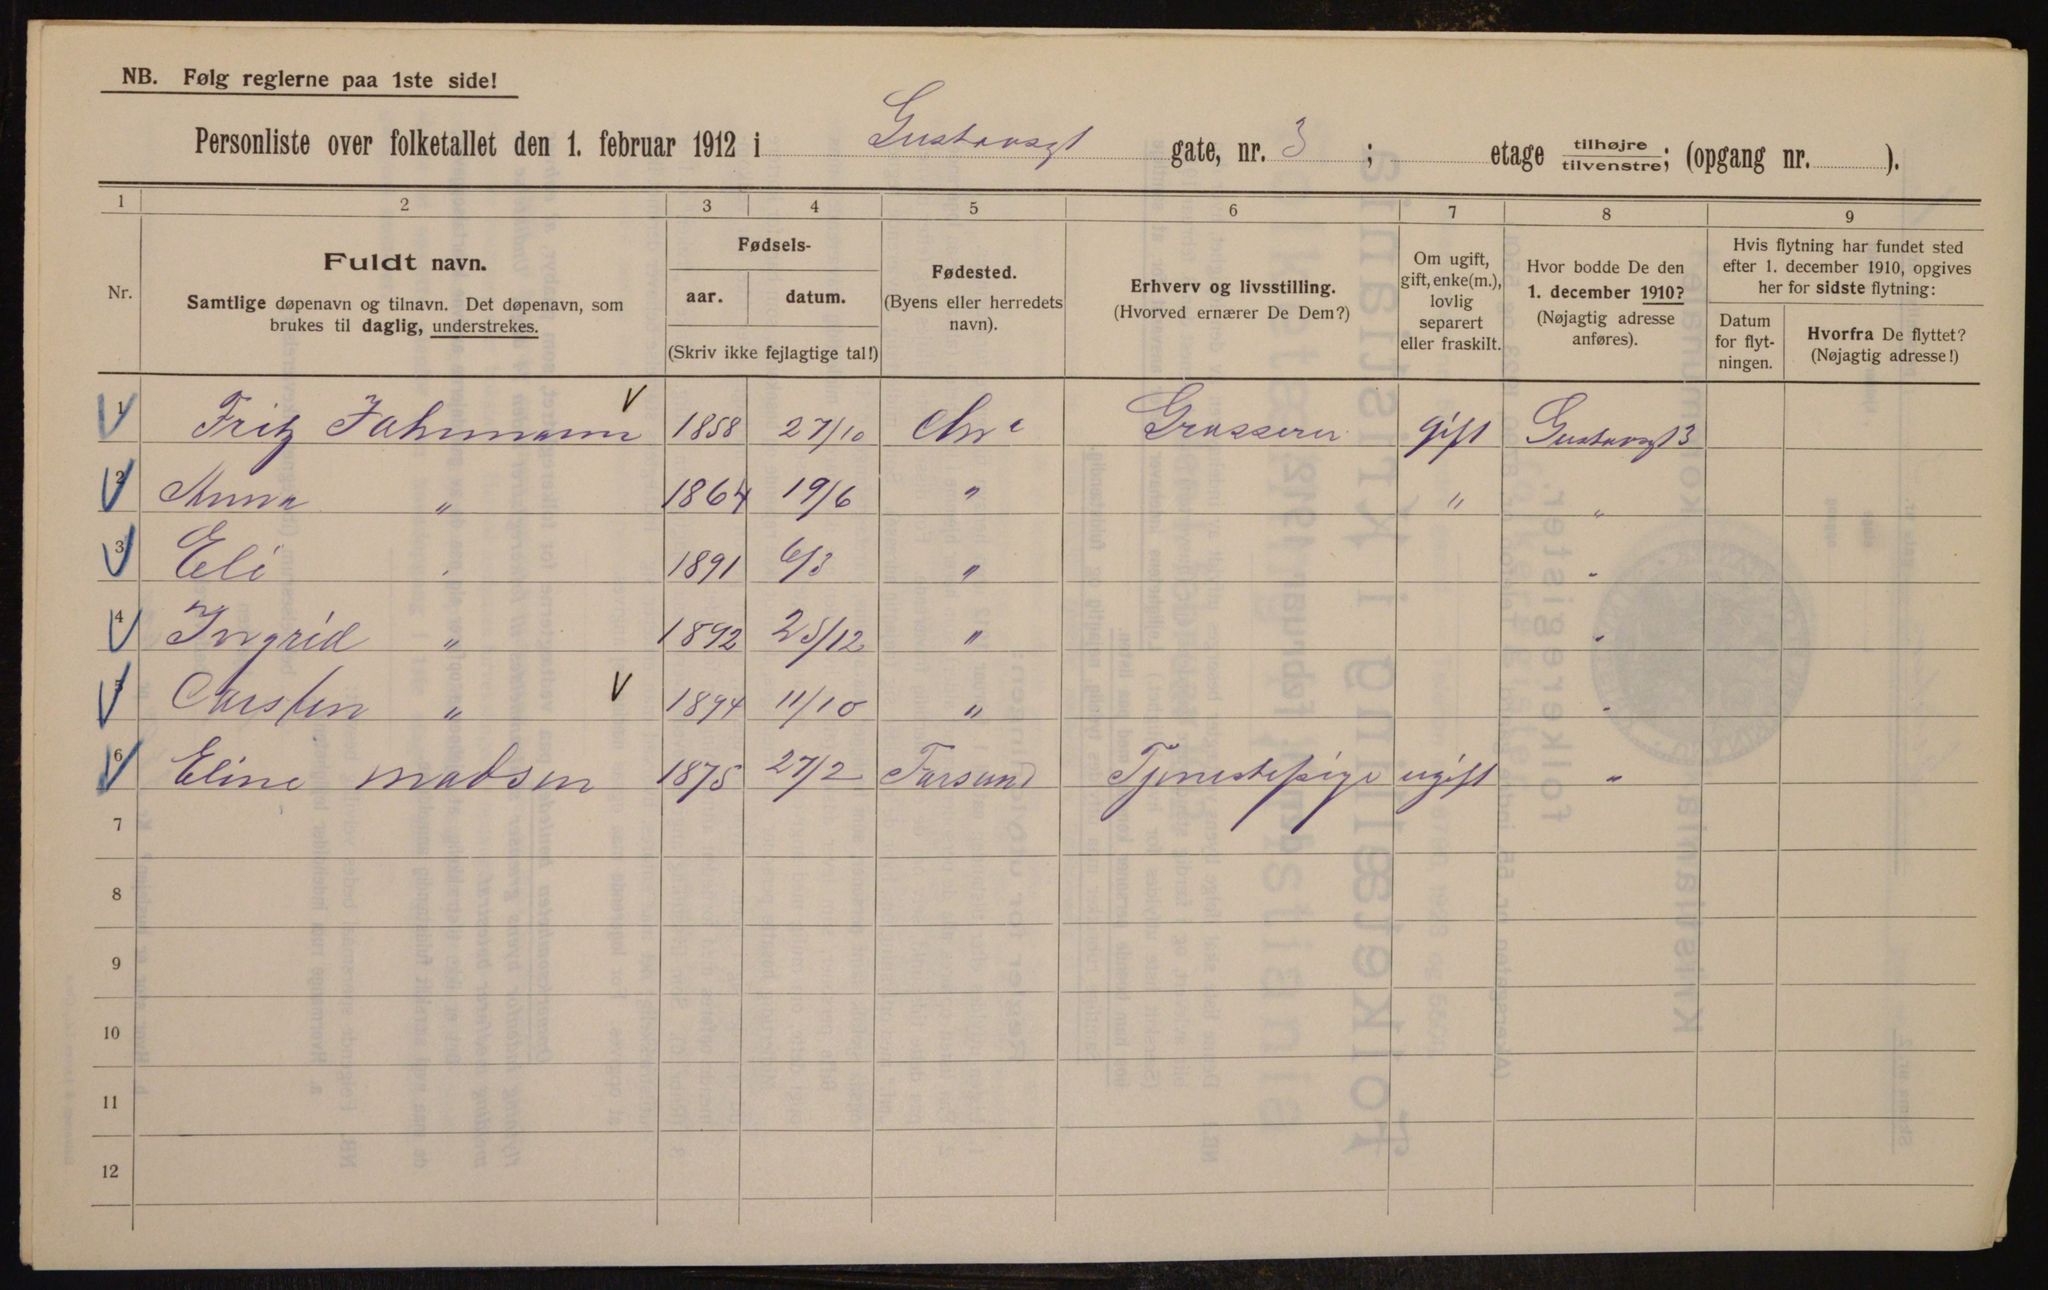 NB. Følg reglerne paa 1ste side!
Personliste over folketallet den 1. februar 1912 i Gustavsgt gate, nr. 3 ; etage tilhøjre/tilvenstre; (opgang nr. ).
1 2 3 4 5 6 7 8 9
Nr.
Fuldt navn.
Samtlige døpenavn og tilnavn. Det døpenavn, som
brukes til daglig, understrekes.
Fødsels-
aar. datum.
(Skriv ikke fejlagtige tal!)
Fødested.
(Byens eller herredets
navn).
Erhverv og livsstilling.
(Hvorved ernærer De Dem?)
Om ugift,
gift, enke(m.),
lovlig
separert
eller fraskilt.
Hvor bodde De den
1. december 1910?
(Nøjagtig adresse
anføres).
Hvis flytning har fundet sted
efter 1. december 1910, opgives
her for sidste flytning:
Datum
for flyt-
ningen.
Hvorfra De flyttet?
(Nøjagtig adresse!)
1 Fritz Jahnmann 1858 27/10 Chra Grosserer gift Gustavsgt 3
2 Anna " 1864 19/6 " " "
3 Eli " 1891 6/3 " "
4 Ingrid " 1892 25/12 " "
5 Carsten " 1894 11/10 " "
6 Eline Madsen 1875 27/2 Farsund Tjenestepige ugift "
7
8
9
10
11
12